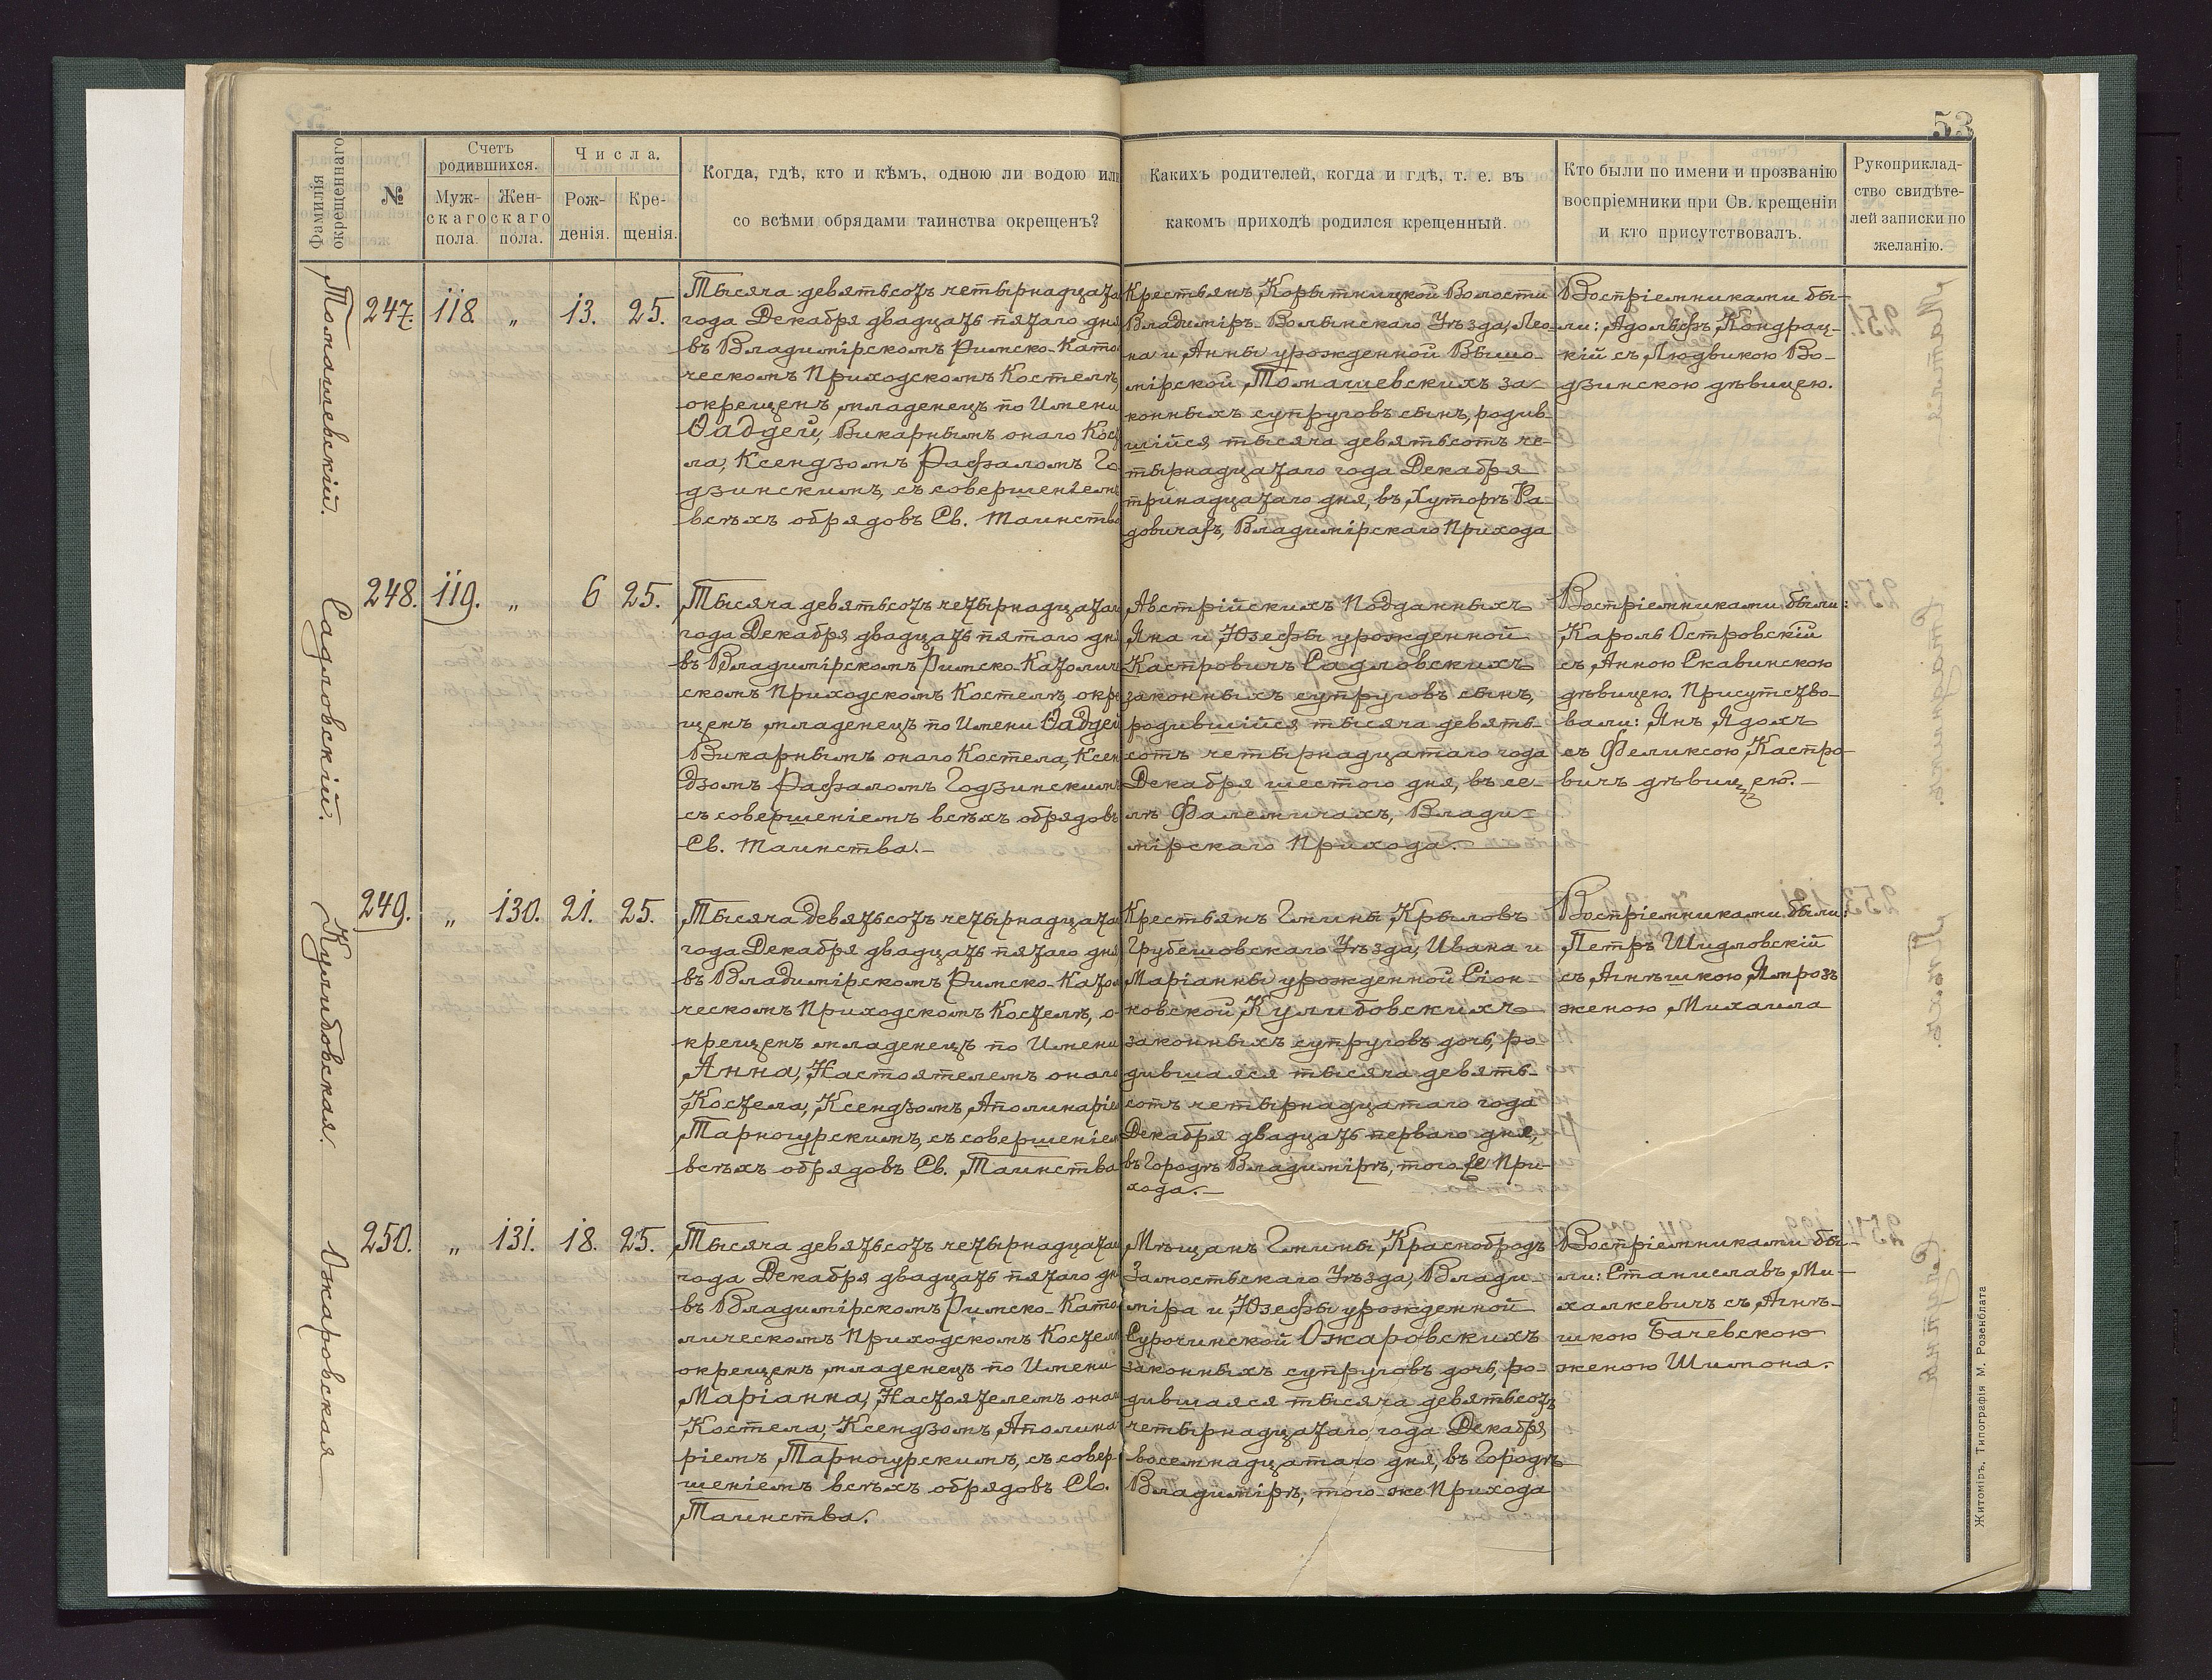 53
Фамилія окрещеннаго
№
Счетъ родившихся.
Мужскаго пола.
Женскаго пола.
Числа.
Рожденія.
Крещенія.
Когда, гдѣ, кто и кѣмъ, одною ли водою или
со всѣми обрядами таинства окрещенъ?
Какихъ родителей, когда и гдѣ, т. е. въ
какомъ приходѣ родился крещенный.
Кто были по имени и прозванію
воспріемники при Св. крещеніи
и кто присутствовалъ.
Рукоприклад-
ство свидѣте-
лей записки по
желанію.
Томашевскій.
247. 118. „ 13. 25.
Тысяча девятьсотъ четырнадцата
года Декабря двадцать пятаго дня
въ Владимірскомъ Римско-Като
ческомъ Приходскомъ Костелѣ,
окрещенъ младенецъ по Имени
Ѳаддей, Викарнымъ онаго Кос
ла, Ксендзомъ Рафаломъ Го
дзинскимъ, съ совершеніемъ
всѣхъ обрядовъ Св. Таинства
Крестьянъ Корытницкой Волости
Владиміръ-Волынскаго Уѣзда, Лео-
на и Анны урожденной Вышо-
мірской, Томашевскихъ за-
конныхъ супруговъ сынъ, родив-
шійся тысяча девятьсотъ че-
тырнадцатаго года Декабря
тринадцатаго дня, въ Хуторѣ Ра-
довичахъ, Владимірскаго Прихода
Воспріемниками бы-
ли: Адольфъ Кондрац-
кій съ Людвикою Во-
дзинскою дѣвицею.
Садловскій.
248. 119. „ 6 25.
Тысяча девятьсотъ четырнадцатаго
года Декабря двадцать пятаго дня
въ Владимірскомъ Римско-Католиче
скомъ Приходскомъ Костелѣ, окре
щенъ младенецъ по Имени Ѳаддей
Викарнымъ онаго Костела, Ксен
дзомъ Рафаломъ Годзинскимъ
съ совершеніемъ всѣхъ обрядовъ
Св. Таинства.-
Австрійскихъ Подданныхъ
Яна и Юзефы урожденной
Кастровичъ Садловскихъ
законныхъ супруговъ сынъ,
родившійся тысяча девять-
сотъ четырнадцатаго года
Декабря шестого дня, въ се-
лѣ Фалемичахъ, Влади-
мірскаго Прихода.-
Воспріемниками были:
Кароль Островскій
съ Анною Скавинскою
дѣвицею. Присутство-
вали: Янъ Ядохъ
съ Феликсою Кастро-
вичъ дѣвицею.-
Кулибовская.
249. „ 130. 21. 25.
Тысяча девятьсотъ четырнадцата
года Декабря двадцать пятаго дня
въ Владимірскомъ Римско-Катол
ческомъ Приходскомъ Костелѣ, о-
крещенъ младенецъ по Имени
Анна, Настоятелемъ онаго
Костела, Ксендзомъ Аполинаріе
Тарногурскимъ, съ совершеніем
всѣхъ обрядовъ Св. Таинства
Крестьянъ Гмины Крыловъ
Грубешовскаго Уѣзда, Ивана и
Маріанны урожденной Сіон-
ковской, Кулибовскихъ
законныхъ супруговъ дочь, ро-
дившаяся тысяча девять-
сотъ четырнадцатаго года
Декабря двадцать перваго дня,
въ Городѣ Владимірѣ, того же При-
хода.-
Воспріемниками были:
Петръ Шидловскій
съ Агнѣшкою Ямрозъ
женою Михаила
Ожаровская
250. „ 131. 18. 25.
Тысяча девятьсотъ четырнадцата
года Декабря двадцать пятаго дн
въ Владимірскомъ Римско-Като
лическомъ Приходскомъ Костелѣ
окрещенъ младенецъ по Имени
Маріанна, Настоятелемъ онаго
Костела, Ксендзомъ Аполина
ріемъ Тарногурскимъ, съ совер-
шеніемъ всѣхъ обрядовъ Св.
Таинства.
Мѣщанъ Гмины Краснобродъ
Замостьскаго Уѣзда, Влади-
міра и Юзефы урожденной
Сурочинской Ожаровскихъ
законныхъ супруговъ дочь, ро-
дившаяся тысяча девятьсотъ
четырнадцатаго года Декабря
восемнадцатаго дня, въ Городѣ
Владимірѣ, того-же Прихода
Воспріемниками бы-
ли: Станиславъ Ми-
халкевичъ съ Агнѣ-
шкою Бачевскою
женою Шимона.
Житоміръ, Типографія М. Розенблата